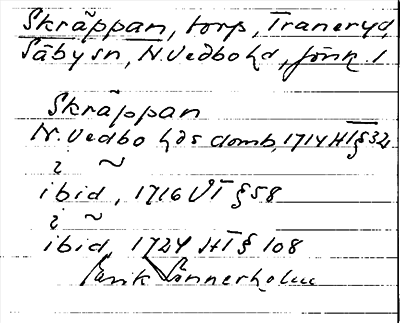 Skräppan, torp, Traneryd,
Säby sn, N. Vedbo hd, Jönk. l
Skräppan
N. Vedbo hds domb, 1714 HT § 32
2 ~
ibid, 1716 VT § 58
2 ~
ibid, 1724 HT § 108
Erik Linnerholm